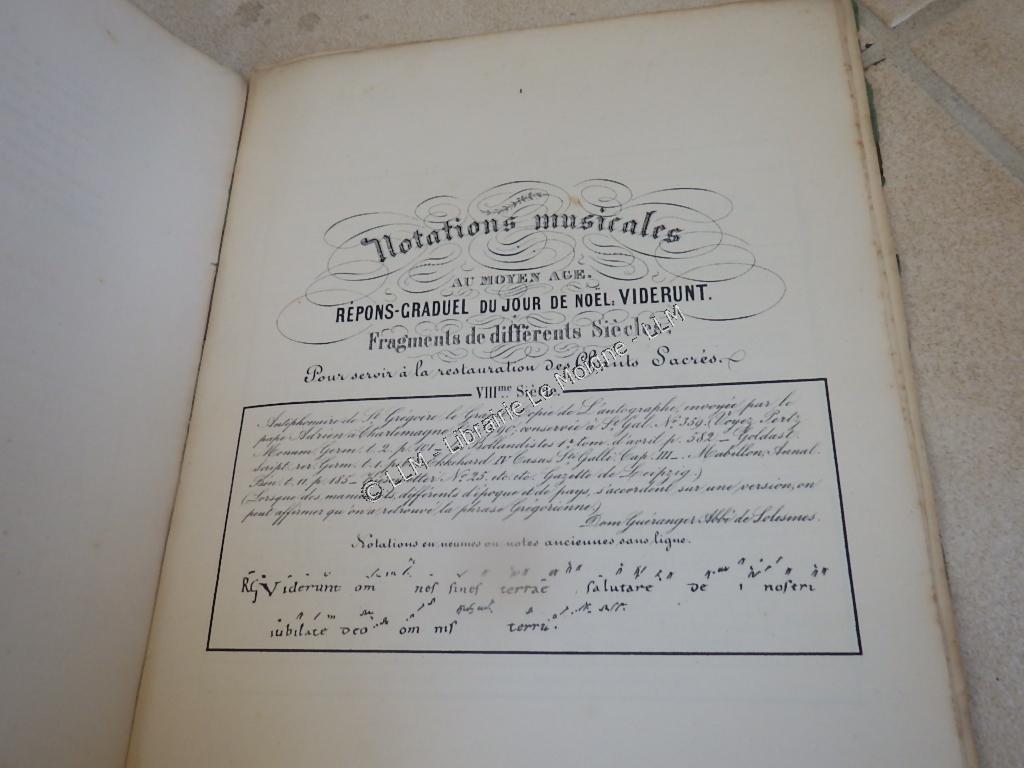 Notations musicales
AU MOYEN AGE.
RÉPONS-GRADUEL DU JOUR DE NOEL: VIDERUNT.
Fragments de différents Siècles
Pour servir à la restauration des Chants Sacrés.
VIIIme Siècle.
Antiphonaire de St Grégoire le Grand, Copie de L'autographe, envoyée par le
pape Adrien à Charlemagne conservée à St Gal. No 359. (Voyez Pertz
Monum. Germ. t. 2. p. 101 Bollandistes 1r tom. d'avril p. 582 _ Goldast.
Script. rer. Germ. t. 1. p. Ekkehard IV Casus Sti Galli Cap. III _ Mabillon, Annal.
Ben. t. 11. p. 185 _ No 25. etc. etc. Gazette de Leipzig.)
(Lorsque des manuscrits, différents d'époque et de pays, s'accordent sur une version, on
peut affirmer qu'on a retrouvé la phrase Grégorienne)
_ Dom Guéranger Abbé de Solesmes.
Notations en neumes ou notes anciennes sans ligne.
Viderunt om nes fines terrae salutare de i nostri
iubilate deo om nis terra.
© LLM - Librairie Le Molière - LLM